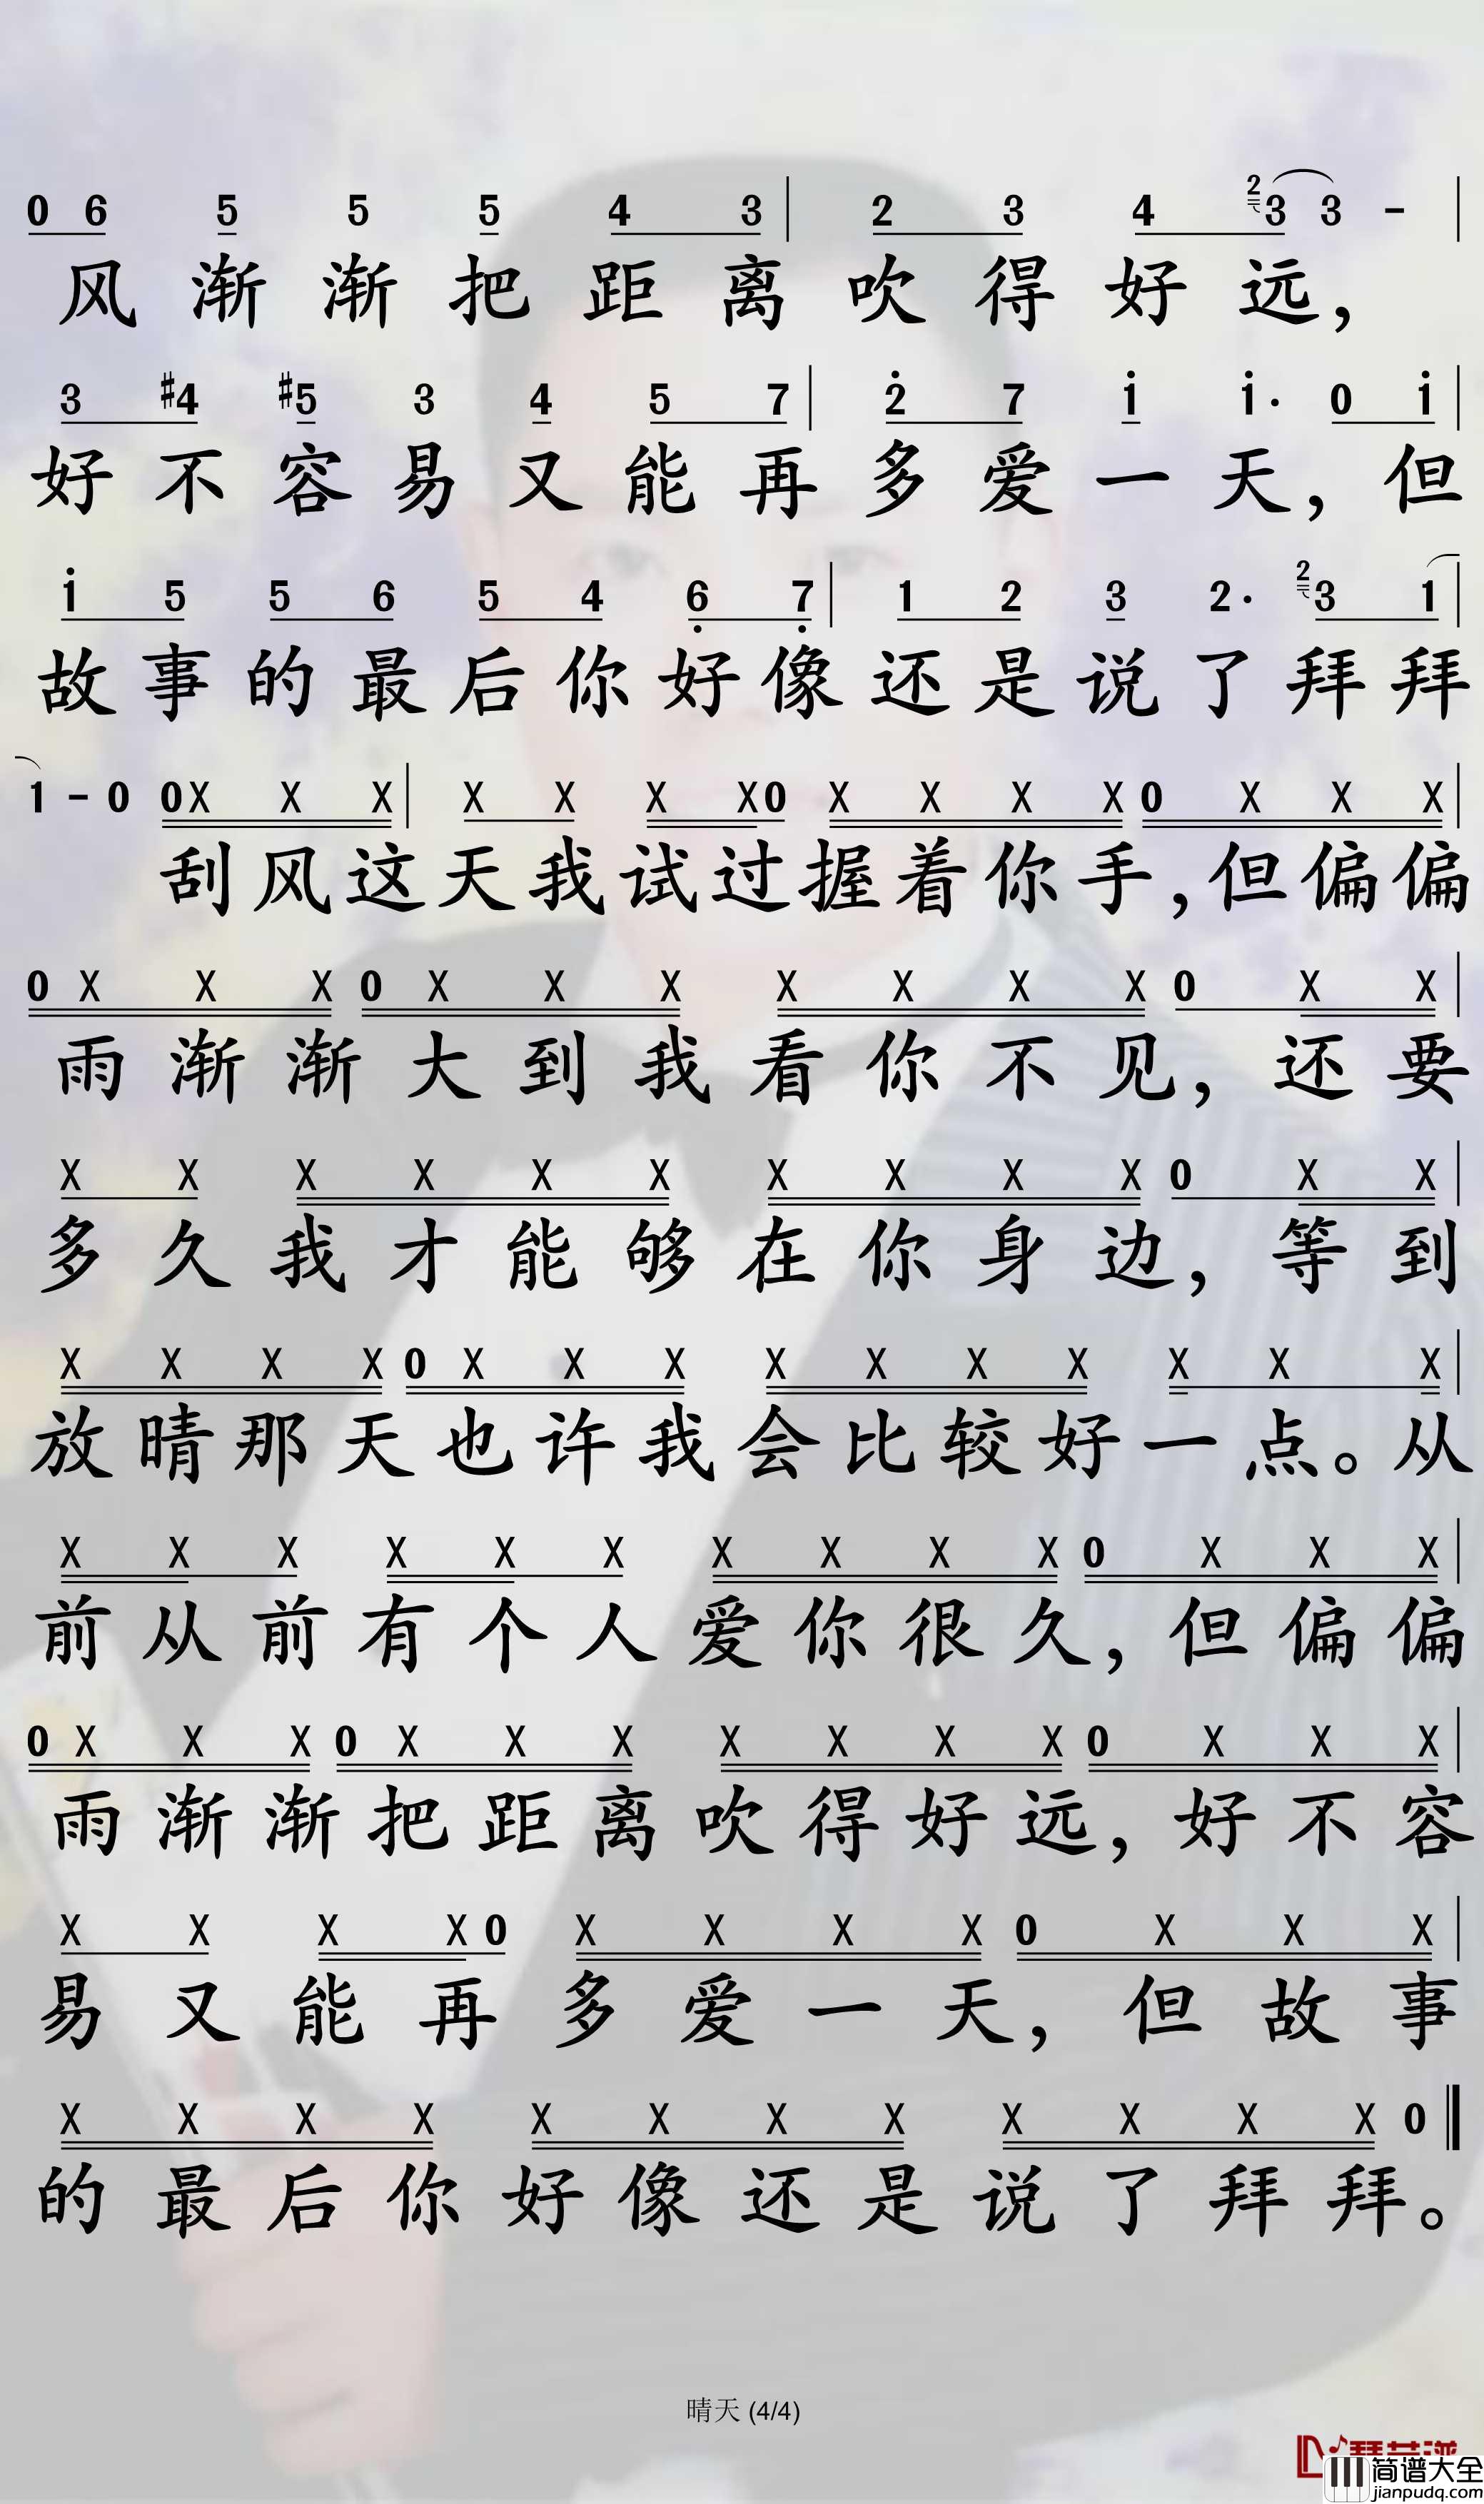 0 6 5 5 5 4 3 | 2 3 4 2 3 3 - |
风渐渐把距离吹得好远，
3 #4 #5 3 4 5 7 | 2̇ 7 1̇ 1̇· 0 1̇ |
好不容易又能再多爱一天，但
1̇ 5 5 6 5 4 6̣ 7̣ | 1 2 3 2· 2 3 1 |
故事的最后你好像还是说了拜拜
1 - 0 0 X X X | X X X X 0 X X X X 0 X X X |
刮风这天我试过握着你手，但偏偏
0 X X X 0 X X X X X X X 0 X X |
雨渐渐大到我看你不见，还要
X X X X X X X X X X 0 X X |
多久我才能够在你身边，等到
X X X X 0 X X X X X X X X X X |
放晴那天也许我会比较好一点。从
X X X X X X X X X X 0 X X X |
前从前有个人爱你很久，但偏偏
0 X X X 0 X X X X X X X 0 X X X |
雨渐渐把距离吹得好远，好不容
X X X X 0 X X X X 0 X X X |
易又能再多爱一天，但故事
X X X X X X X X X X X X 0 ‖
的最后你好像还是说了拜拜。
晴天 (4/4)
简谱大全
jianpudq.com